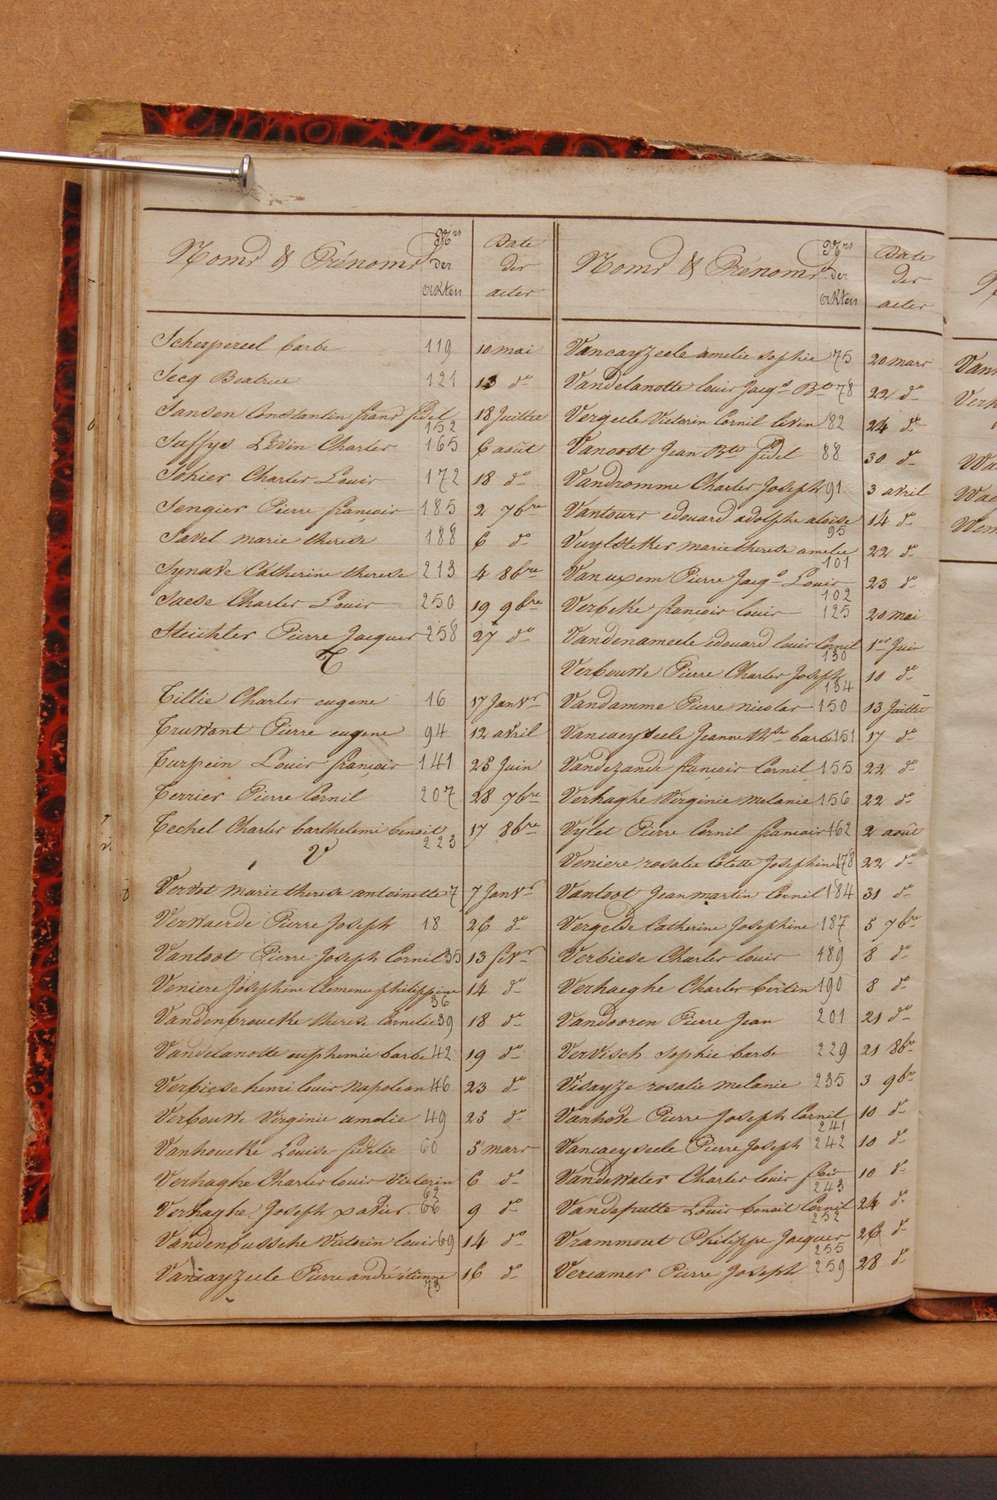 Noms & Prénoms Nos des actes Date des actes
Schepereel barbe 119 10 mai
Secq Beatrice 121 13 do
Sansen Constantin frans fidel 152 18 Juillet
Saffys Livin Charles 165 6 août
Sohier Charles Louis 172 18 do
Sengier Pierre françois 185 2 7bre
Savel marie therese 188 6 do
Synave Catherine therese 213 4 8bre
Saese Charles Louis 250 19 9bre
Steichter Pierre Jacques 258 27 do
T
Tillie Charles eugene 16 17 Janvr
Truwant Pierre eugene 94 12 avril
Turpein Louis françois 141 23 Juin
Terrier Pierre Cornil 207 28 7bre
Techel Charles barthelemi benoit 223 17 8bre
V
Vervot marie therese antoinette 7 7 Janvr
Verwaerde Pierre Joseph 18 26 do
Vanloot Pierre Joseph Cornil 35 13 fevr
Veniere Josephine Clemence philippine 36 14 do
Vandenbroucke therese Cornelie 39 18 do
Vandelanotte euphemie barbe 42 19 do
Verbiese henri louis napoleon 46 23 do
Verbouwe Virginie amelie 49 25 do
Vanhoucke Louise fidelie 60 5 mars
Verhaghe Charles louis Victorin 62 6 do
Verhaghe Joseph xavier 66 9 do
Vandenbussche Victorin louis 69 14 do
Vancayzeele Pierre andré étienne 73 16 do
Noms & Prénoms Nos des actes Date des actes
Vancayzeele amelie sophie 75 20 mars
Vandelanotte louis Jacqs Bte 78 22 do
Vergeele Victorin Cornil Levin 82 24 do
Vanoost Jean Bte fidel 88 30 do
Vandromme Charles Joseph 91 3 avril
Vantours edouard adolphe aloise 95 14 do
Vuylsteker marie therese amelie 101 22 do
Vanuxem Pierre Jacqs Louis 102 23 do
Verbeke françois louis 125 20 mai
Vandenameele edouard louis Cornil 130 1er Juin
Verbouwe Pierre Charles Joseph 134 10 do
Vandamme Pierre nicolas 150 13 Juillet
Vancaeyzeele Jeanne Mte barbe 151 17 do
Vandezande françois Cornil 155 22 do
Verhaghe Virginie melanie 156 22 do
Vylet Pierre Cornil françois 162 2 août
Veniere rosalie Colette Josephine 178 22 do
Vanloot Jean martin Cornil 184 31 do
Vergelde Catherine Josephine 187 5 7bre
Verbiese Charles louis 189 8 do
Verhaeghe Charles bertin 190 8 do
Vandooren Pierre Jean 201 21 do
Vervisch sophie barbe 229 21 8bre
Visayze rosalie melanie 235 3 9bre
Vanhove Pierre Joseph Cornil 241 10 do
Vancaeyseele Pierre Joseph 242 10 do
Vandewater Charles louis fois 243 10 do
Vandeputte Louis benoit Cornil 252 24 do
Vrammout Philippe Jacques 255 26 do
Vereamer Pierre Joseph 259 28 do